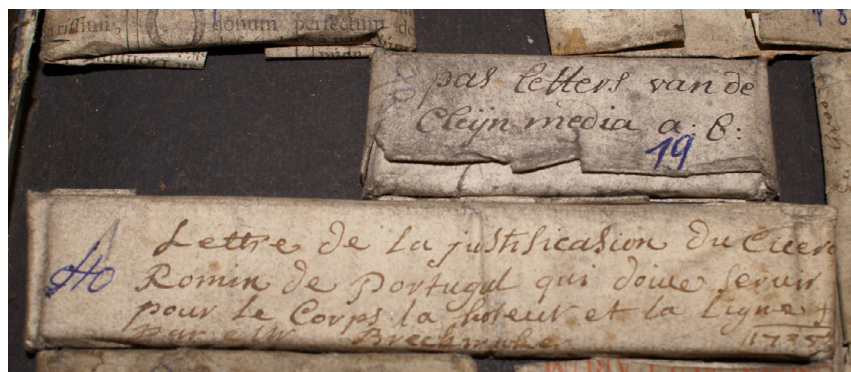 donum perfectum
pas letters van de
Cleijn media a: b:
19
Lettre de la justification du Cicero
Romin de Portugal qui doive servir
pour le Corps la hoteur et la Ligne
par
1735
40